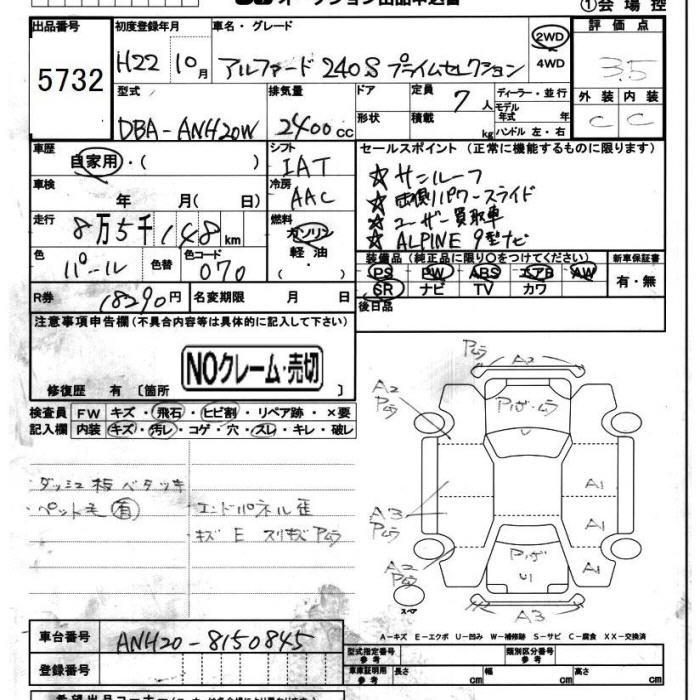 ①会場控
出品番号 初度登録年月 車名・グレード 評価点
5732 H22 10月 アルファード 240S プライムセレクション 2WD 4WD 3.5
型式 排気量 ドア 定員 7人 ディーラー・並行 外装 内装
DBA-ANH20W 2400cc 形状 積載 kg モデル年式 年 ハンドル 左・右 C C
車歴 自家用・( ) シフト IAT セールスポイント (正常に機能するものに限ります)
☆ サンルーフ
車検 年 月(日) 冷房 AAC ☆ 両側パワースライド
☆ ユーザー買取車
走行 8万5千148km 燃料 ガソリン 軽油 ・( ) ☆ ALPINE 9型ナビ
色 パール 色替 色コード 070 装備品(純正品に限り○をつけてください) 新車保証書
PS PW ABS エアB AW 有・無
SR ナビ TV カワ
R券 18290円 名変期限 月 日 後日品
注意事項申告欄(不具合内容等は具体的に記入して下さい)
NOクレーム・売切
修復歴 有 〔箇所 〕
検査員 FW キズ・飛石・ヒビ割・リペア跡・×要
記入欄 内装 キズ・汚レ・コゲ・穴・スレ・キレ・破レ
ダッシュ板ベタツキ
ペット毛 有 エンドパネル歪
キズ E スリキズ Pムラ
Pムラ A2
A2
Pムラ
Pハガ・ムラ
U
A1
A3
Pムラ
A1
A1
Pハガ
U1
A3
スペア
A-キズ E-エクボ U-凹み W-補修跡 S-サビ C-腐食 XX-交換済
車台番号 ANH20-8150845
型式指定番号 参考 類別区分番号 参考
登録番号 車庫証明用 参考 長さ cm 幅 cm 高さ cm